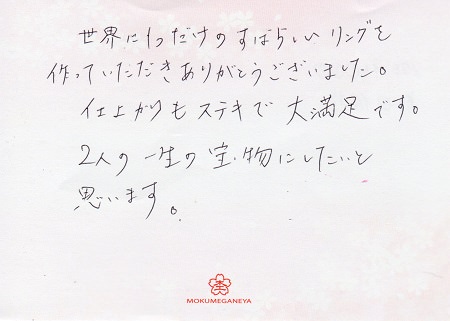 世界に1つだけのすばらしいリングを
作っていただきありがとうございました。
仕上がりもステキで大満足です。
2人の一生の宝物にしたいと
思います。
MOKUMEGANEYA